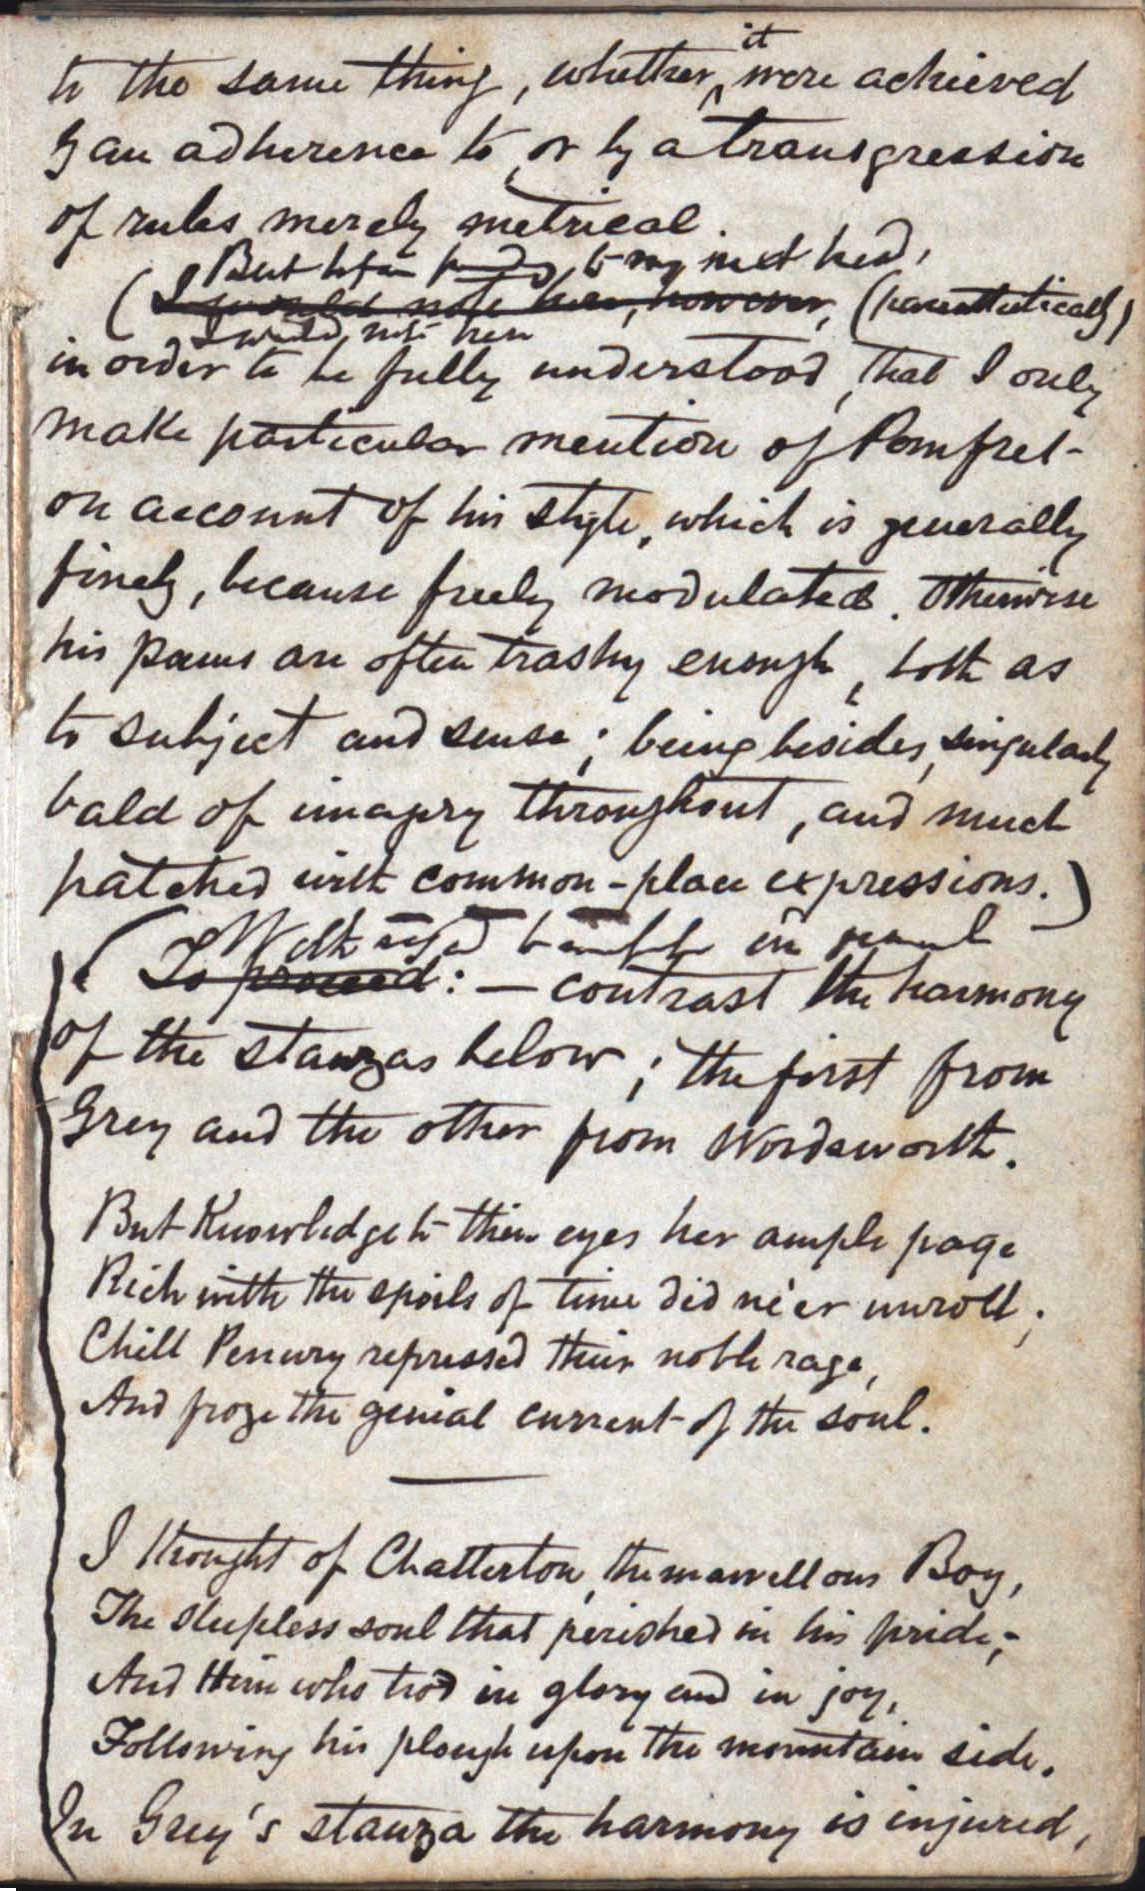 to the same thing, whether it were achieved
by an adherence to, or by a transgression
of rules merely metrical.
But before to my next head,
(I would note here, however, (parenthetically)
I would note here
in order to be fully understood, that I only
make particular mention of Pomfret
on account of his style, which is generally
finely, because freely modulated. Otherwise
his poems are often trashy enough, both as
to subject and sense; being besides, singularly
bald of imagry throughout, and much
patched with common-place expressions.)
With in
(To proceed: — contrast the harmony
of the stanzas below; the first from
Grey and the other from Wordsworth.
But Knowledge to their eyes her ample page
Rich with the spoils of time did ne'er unroll;
Chill Penury repressed their noble rage,
And froze the genial current of the soul.
I thought of Chatterton, the marvellous Boy,
The sleepless soul that perished in his pride;-
And Him who trod in glory and in joy,
Following his plough upon the mountain side.
In Grey's stanza the harmony is injured,